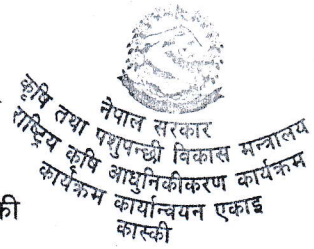 नेपाल सरकार
कृषि तथा पशुपन्छी विकास मन्त्रालय
राष्ट्रिय कृषि आधुनिकीकरण कार्यक्रम
कार्यक्रम कार्यान्वयन एकाइ
कास्की
की